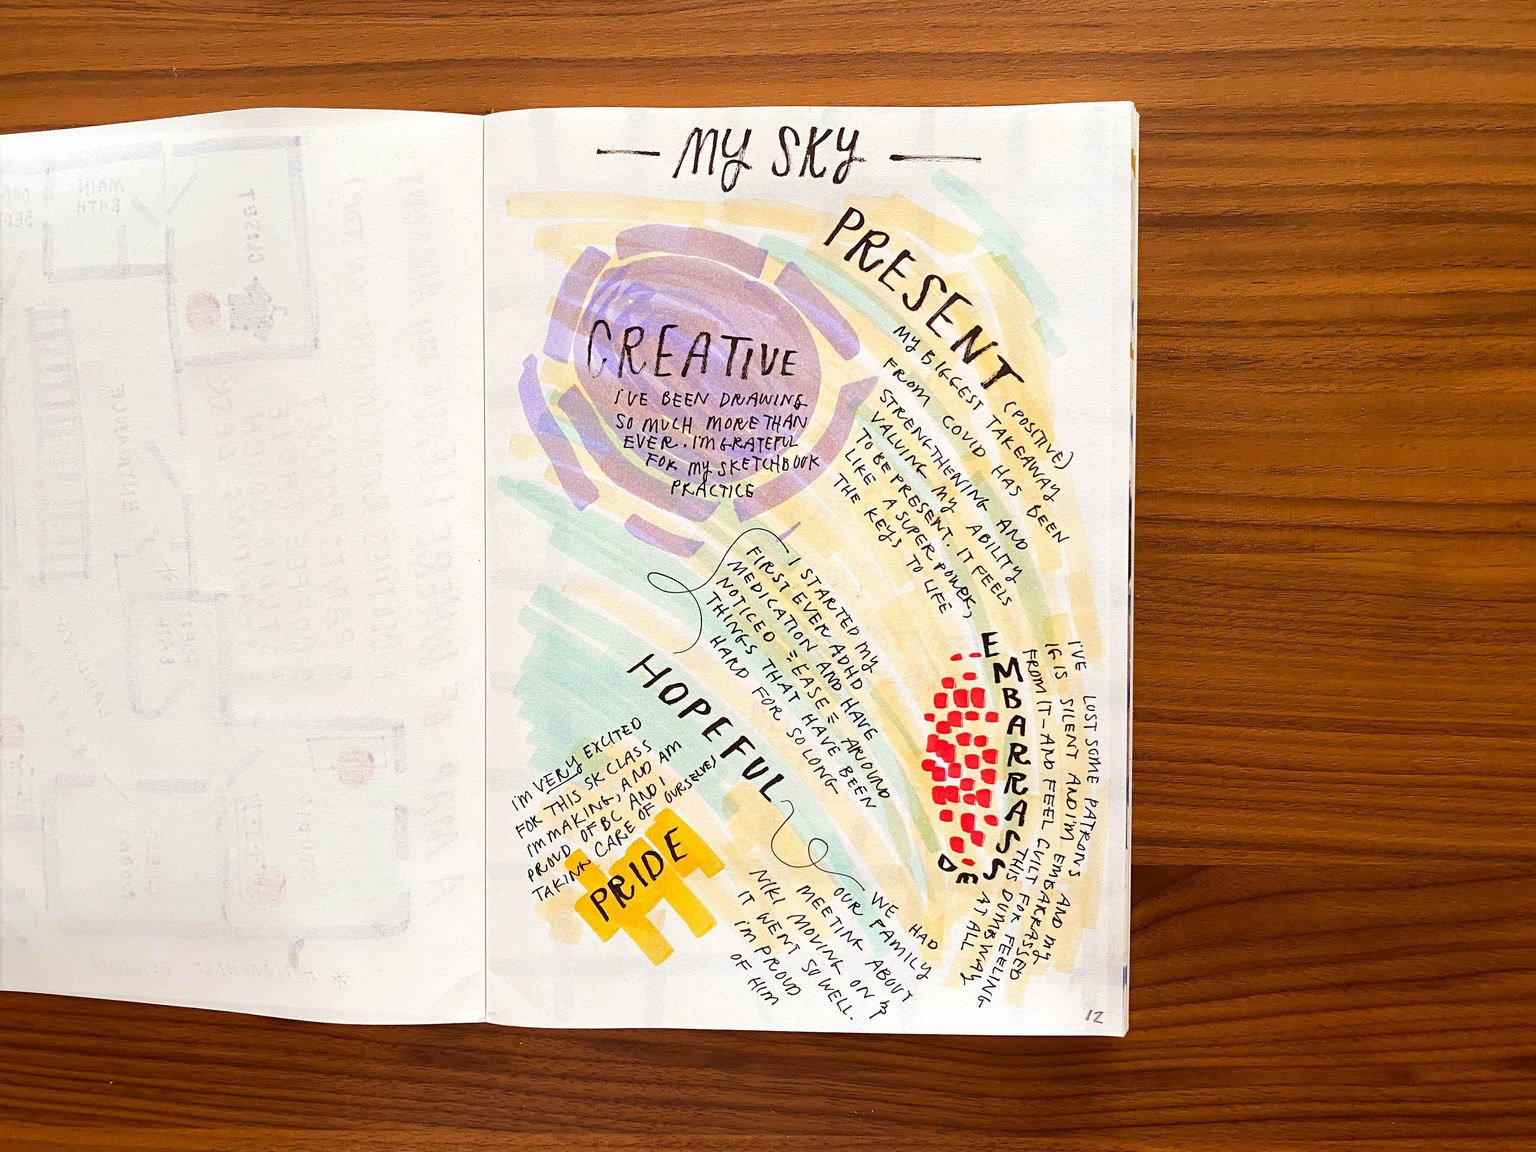 MY SKY
CREATIVE
I'VE BEEN DRAWING
SO MUCH MORE THAN
EVER. I'M GRATEFUL
FOR MY SKETCHBOOK
PRACTICE
PRESENT
(POSITIVE)
MY BIGGEST TAKEAWAY
FROM COVID HAS BEEN
STRENGTHENING AND
VALUING MY ABILITY
TO BE PRESENT. IT FEELS
LIKE A SUPER POWER,
THE KEYS TO LIFE
I STARTED MY
FIRST EVER ADHD
MEDICATION AND HAVE
NOTICED =EASE= AROUND
THINGS THAT HAVE BEEN
HARD FOR SO LONG
HOPEFUL
WE HAD
OUR FAMILY
MEETING ABOUT
NIKI MOVING ON &
IT WENT SO WELL.
I'M PROUD
OF HIM
EMBARRASSED
I'VE LOST SOME PATRONS AND MY
IG IS SILENT AND I'M EMBARRASSED
FROM IT - AND FEEL GUILT FOR FEELING
THIS DUMB WAY
AT ALL
I'M VERY EXCITED
FOR THIS SK CLASS
I'M MAKING, AND AM
PROUD OF BC AND I
TAKING CARE OF OURSELVES)
PRIDE
12
MAIN
BATH
CLOSET
ENTRANCE